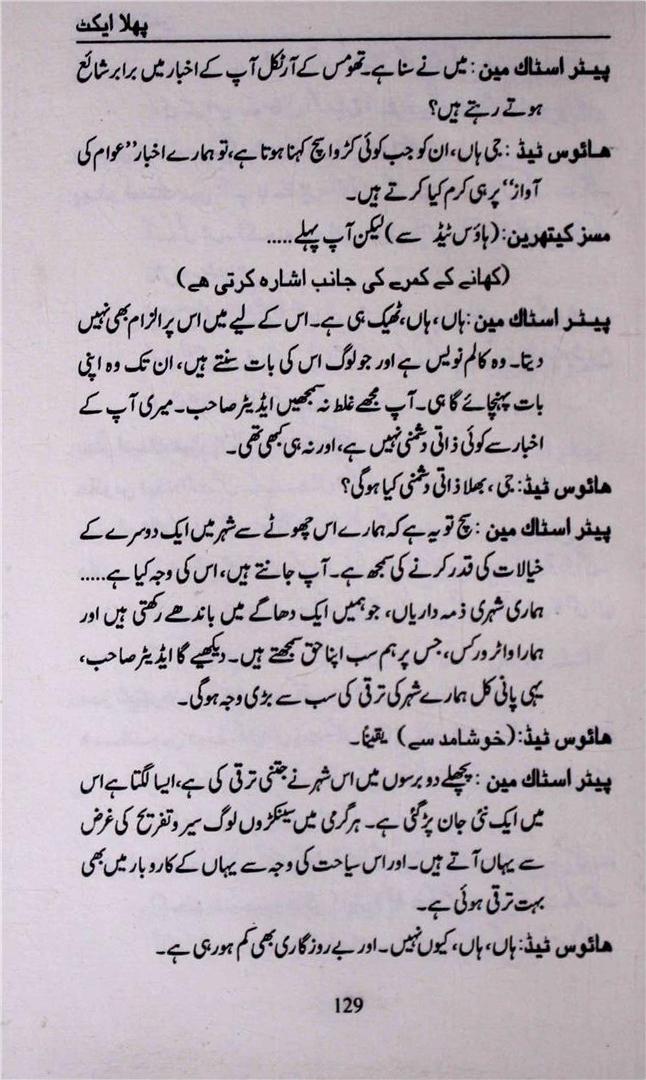 پھلا ایکٹ
پیٹر اسٹاک مین: میں نے سنا ہے۔ تھومس کے آرٹکل آپ کے اخبار میں برابر شائع
ہوتے رہتے ہیں؟
ھائوس ٹیڈ: جی ہاں، ان کو جب کوئی کڑوا سچ کہنا ہوتا ہے، تو ہمارے اخبار ”عوام کی
آواز“ پر ہی کرم کیا کرتے ہیں۔
مسز کیتھرین: (ہاؤس ٹیڈ سے) لیکن آپ پہلے.....
(کھانے کے کمرے کی جانب اشارہ کرتی ھے)
پیٹر اسٹاک مین: ہاں، ہاں، ٹھیک ہی ہے۔ اس کے لیے میں اس پر الزام بھی نہیں
دیتا۔ وہ کالم نویس ہے اور جو لوگ اس کی بات سنتے ہیں، ان تک وہ اپنی
بات پہنچائے گا ہی۔ آپ مجھے غلط نہ سمجھیں ایڈیٹر صاحب۔ میری آپ کے
اخبار سے کوئی ذاتی دشمنی نہیں ہے، اور نہ ہی کبھی تھی۔
ھائوس ٹیڈ: جی، بھلا ذاتی دشمنی کیا ہوگی؟
پیٹر اسٹاک مین: سچ تو یہ ہے کہ ہمارے اس چھوٹے سے شہر میں ایک دوسرے کے
خیالات کی قدر کرنے کی سمجھ ہے۔ آپ جانتے ہیں، اس کی وجہ کیا ہے.....
ہماری شہری ذمہ داریاں، جو ہمیں ایک دھاگے میں باندھے رکھتی ہیں اور
ہمارا واٹر ورکس، جس پر ہم سب اپنا حق سمجھتے ہیں۔ دیکھیے گا ایڈیٹر صاحب،
یہی پانی کل ہمارے شہر کی ترقی کی سب سے بڑی وجہ ہوگی۔
ھائوس ٹیڈ: (خوشامد سے) یقیناً۔
پیٹر اسٹاک مین: پچھلے دو برسوں میں اس شہر نے جتنی ترقی کی ہے، ایسا لگتا ہے اس
میں ایک نئی جان پڑ گئی ہے۔ ہر گرمی میں سینکڑوں لوگ سیر و تفریح کی غرض
سے یہاں آتے ہیں۔ اور اس سیاحت کی وجہ سے یہاں کے کاروبار میں بھی
بہت ترقی ہوئی ہے۔
ھائوس ٹیڈ: ہاں، ہاں، کیوں نہیں۔ اور بے روزگاری بھی کم ہورہی ہے۔
129